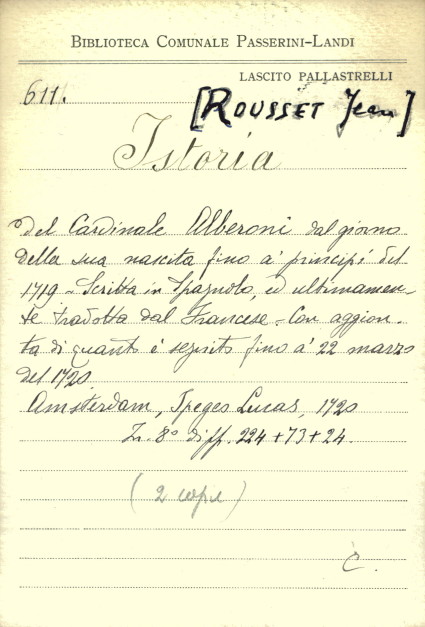 BIBLIOTECA COMUNALE PASSERINI-LANDI
LASCITO PALLASTRELLI
611.
[ROUSSET Jean]
Istoria
del Cardinale Alberoni dal giorno
della sua nascita fino a' principi del
1719 - Scritta in Spagnolo, ed ultimamen-
te tradotta dal Francese - Con aggion-
ta di quanto è seguito fino a' 22 marzo
del 1720.
Amsterdam, Ipeges Lucas, 1720
In 8° di ff. 224+73+24.
(2 copie)
C.